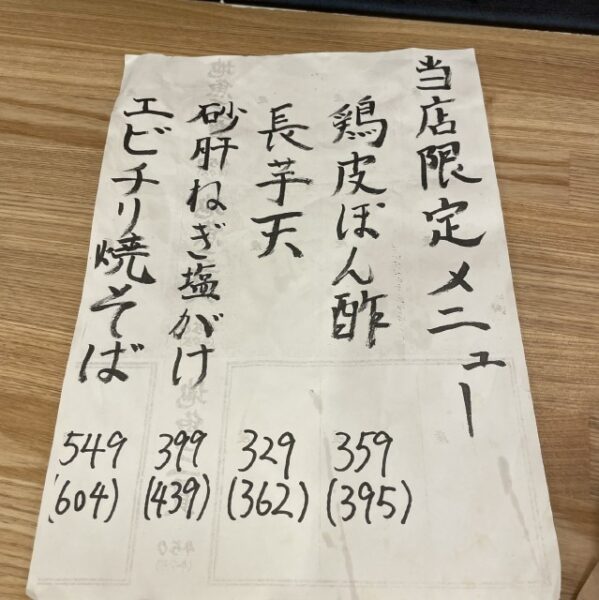 当店限定メニュー
鶏皮ぽん酢
359
(395)
長芋天
329
(362)
砂肝ねぎ塩がけ
399
(439)
エビチリ焼そば
549
(604)